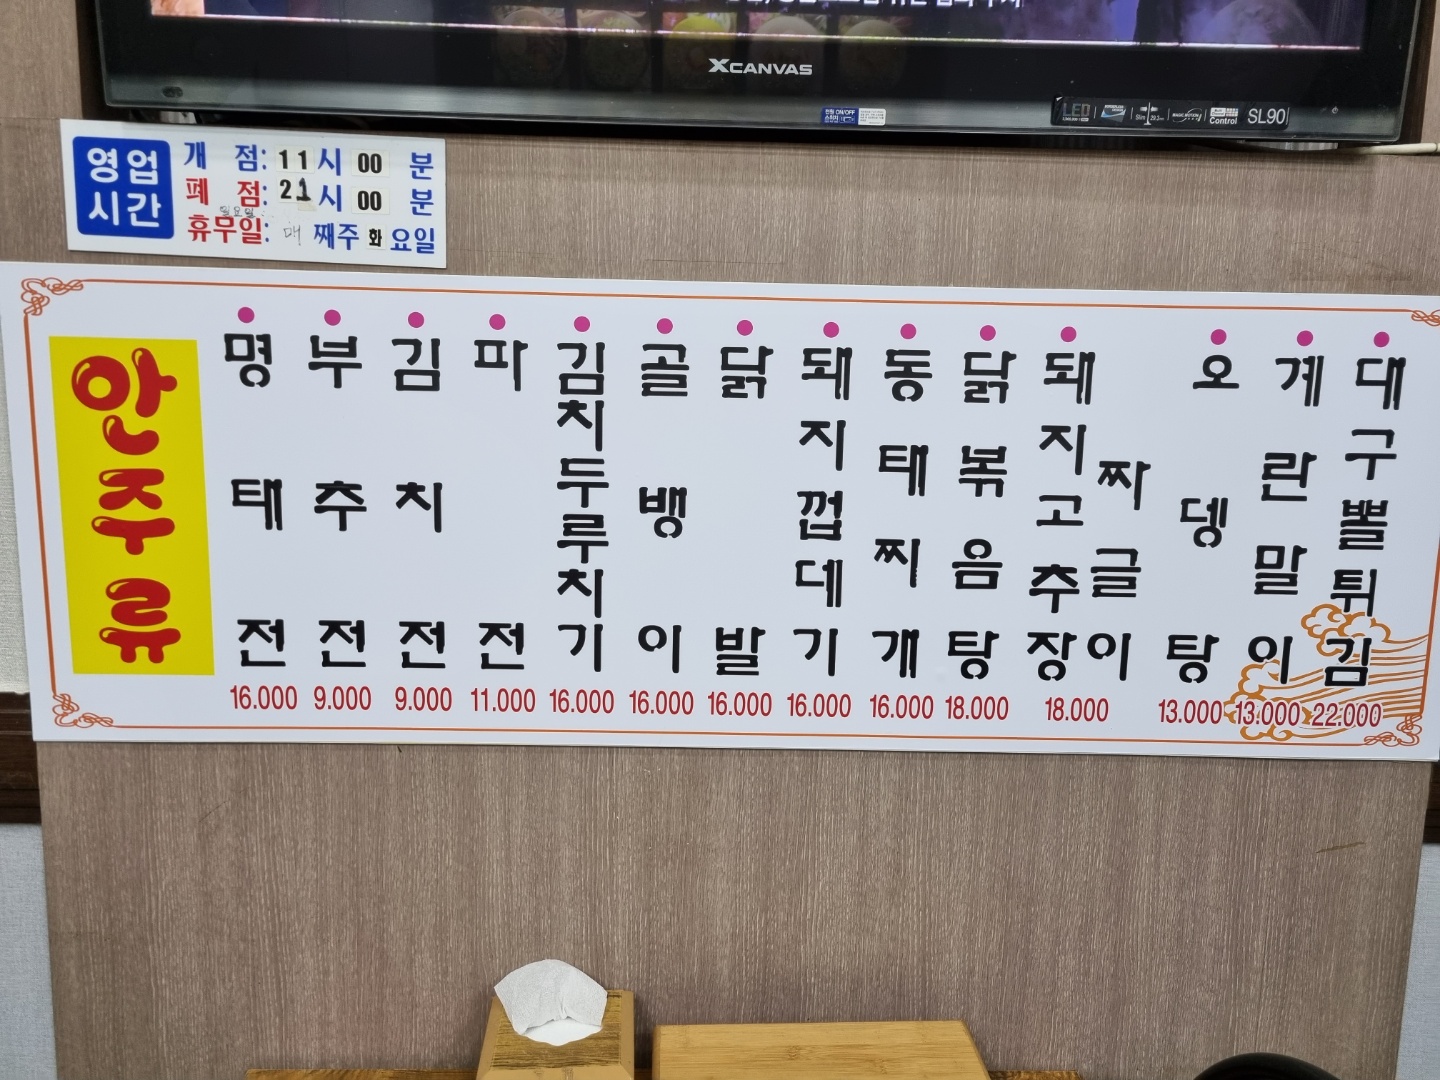 XCANVAS
LED
Control
SL90
영업
시간
개 점: 11시 00 분
폐 점: 21시 00 분
일요일
휴무일: 매 째주 화요일
안주류
명태전
16.000
부추전
9.000
김치전
9.000
파전
11.000
김치두루치기
16.000
골뱅이
16.000
닭발
16.000
돼지껍데기
16.000
동태찌개
16.000
닭볶음탕
18.000
돼지고추장
짜글이
18.000
오뎅탕
13.000
계란말이
13.000
대구뽈튀김
22.000